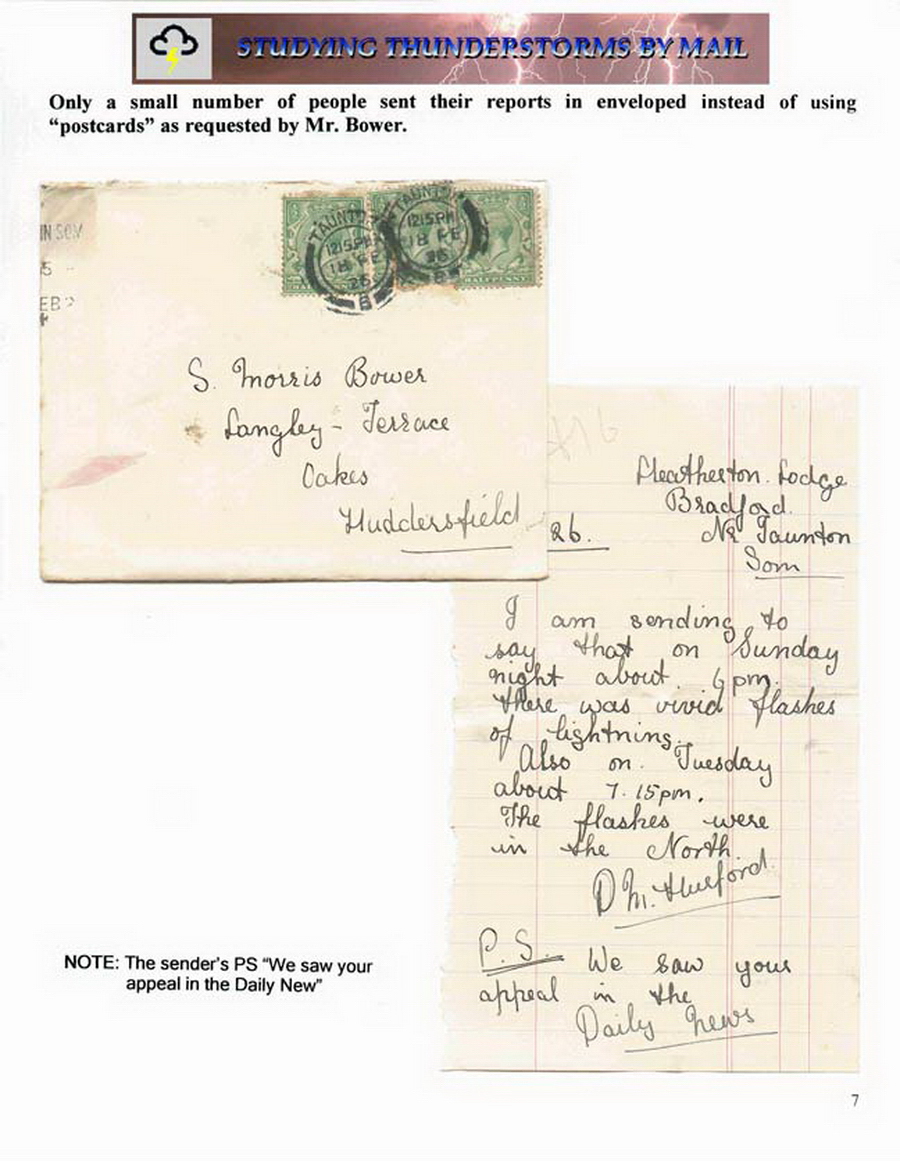 STUDYING THUNDERSTORMS BY MAIL
Only a small number of people sent their reports in enveloped instead of using
“postcards” as requested by Mr. Bower.
IN SOM
5
EB
TAUNTON
12 15 PM
18 FE
26
B
TAUNTON
12 15 PM
18 FE
26
B
HALFPENNY
S. Morris Bower
Langley - Terrace
Oakes
Huddersfield
Heatherton. Lodge
Bradford.
26. Nr Taunton
Som
I am sending to
say that on Sunday
night about 6 pm.
there was vivid flashes
of lightning.
Also on. Tuesday
about 7.15pm.
The flashes were
in the North.
D M.
P.S. We saw your
appeal in the
Daily News
NOTE: The sender's PS “We saw your
appeal in the Daily New”
7